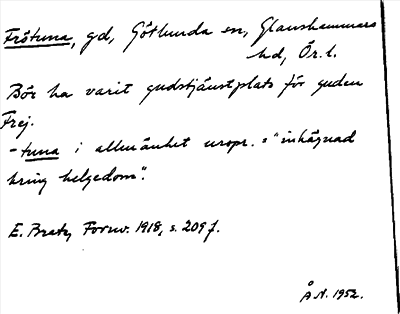 Frötuna, gd, Götlunda sn, Glanshammars
hd, Ör. l.
Bör ha varit gudstjänstplats för guden
Frej.
-tuna i allmänhet urspr. = "inhägnad
kring helgedom".
E. Brate, Fornv. 1918, s. 209 f.
Å N. 1952.